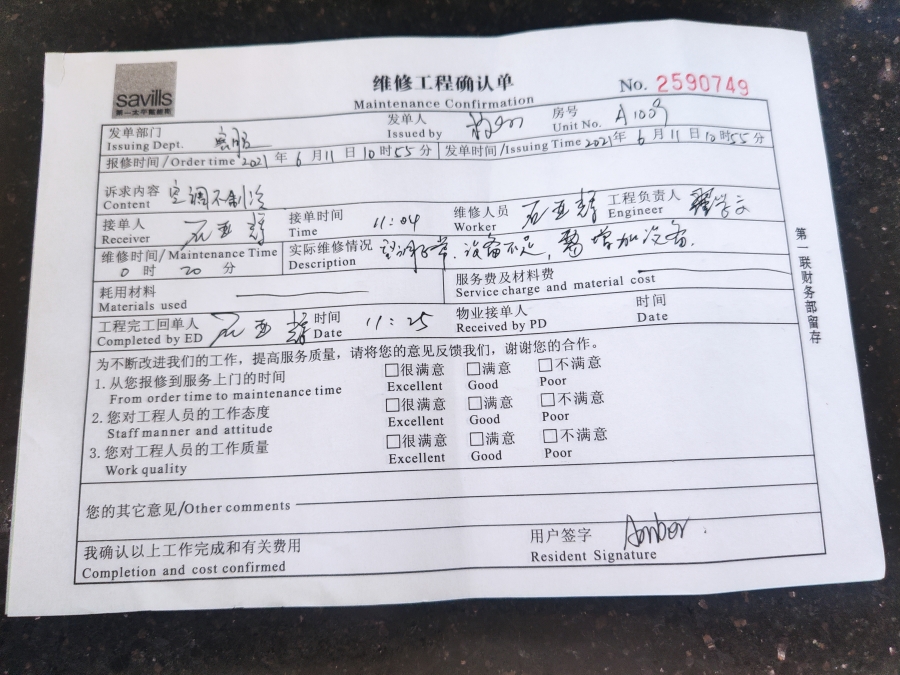 savills
第一太平戴维斯
维修工程确认单
Maintenance Confirmation
No. 2590749
发单部门 客服 发单人 房号 A1003
Issuing Dept. Issued by Unit No.
报修时间/Order time 2021年6月11日10时55分 发单时间/Issuing Time 2021年6月11日10时55分
诉求内容 空调不制冷
Content
接单人 石亚 接单时间 11:04 维修人员 石亚 工程负责人
Receiver Time Worker Engineer
维修时间/Maintenance Time 实际维修情况 空调 设备不足, 增加设备.
0时20分 Description
耗用材料 服务费及材料费
Materials used Service charge and material cost
工程完工回单人 石亚 时间 11:25 物业接单人 时间
Completed by ED Date Received by PD Date
为不断改进我们的工作，提高服务质量，请将您的意见反馈我们，谢谢您的合作。
1.从您报修到服务上门的时间 □很满意 □满意 □不满意
From order time to maintenance time Excellent Good Poor
2.您对工程人员的工作态度 □很满意 □满意 □不满意
Staff manner and attitude Excellent Good Poor
3.您对工程人员的工作质量 □很满意 □满意 □不满意
Work quality Excellent Good Poor
您的其它意见/Other comments
我确认以上工作完成和有关费用 用户签字 Amber
Completion and cost confirmed Resident Signature
第一联财务部留存